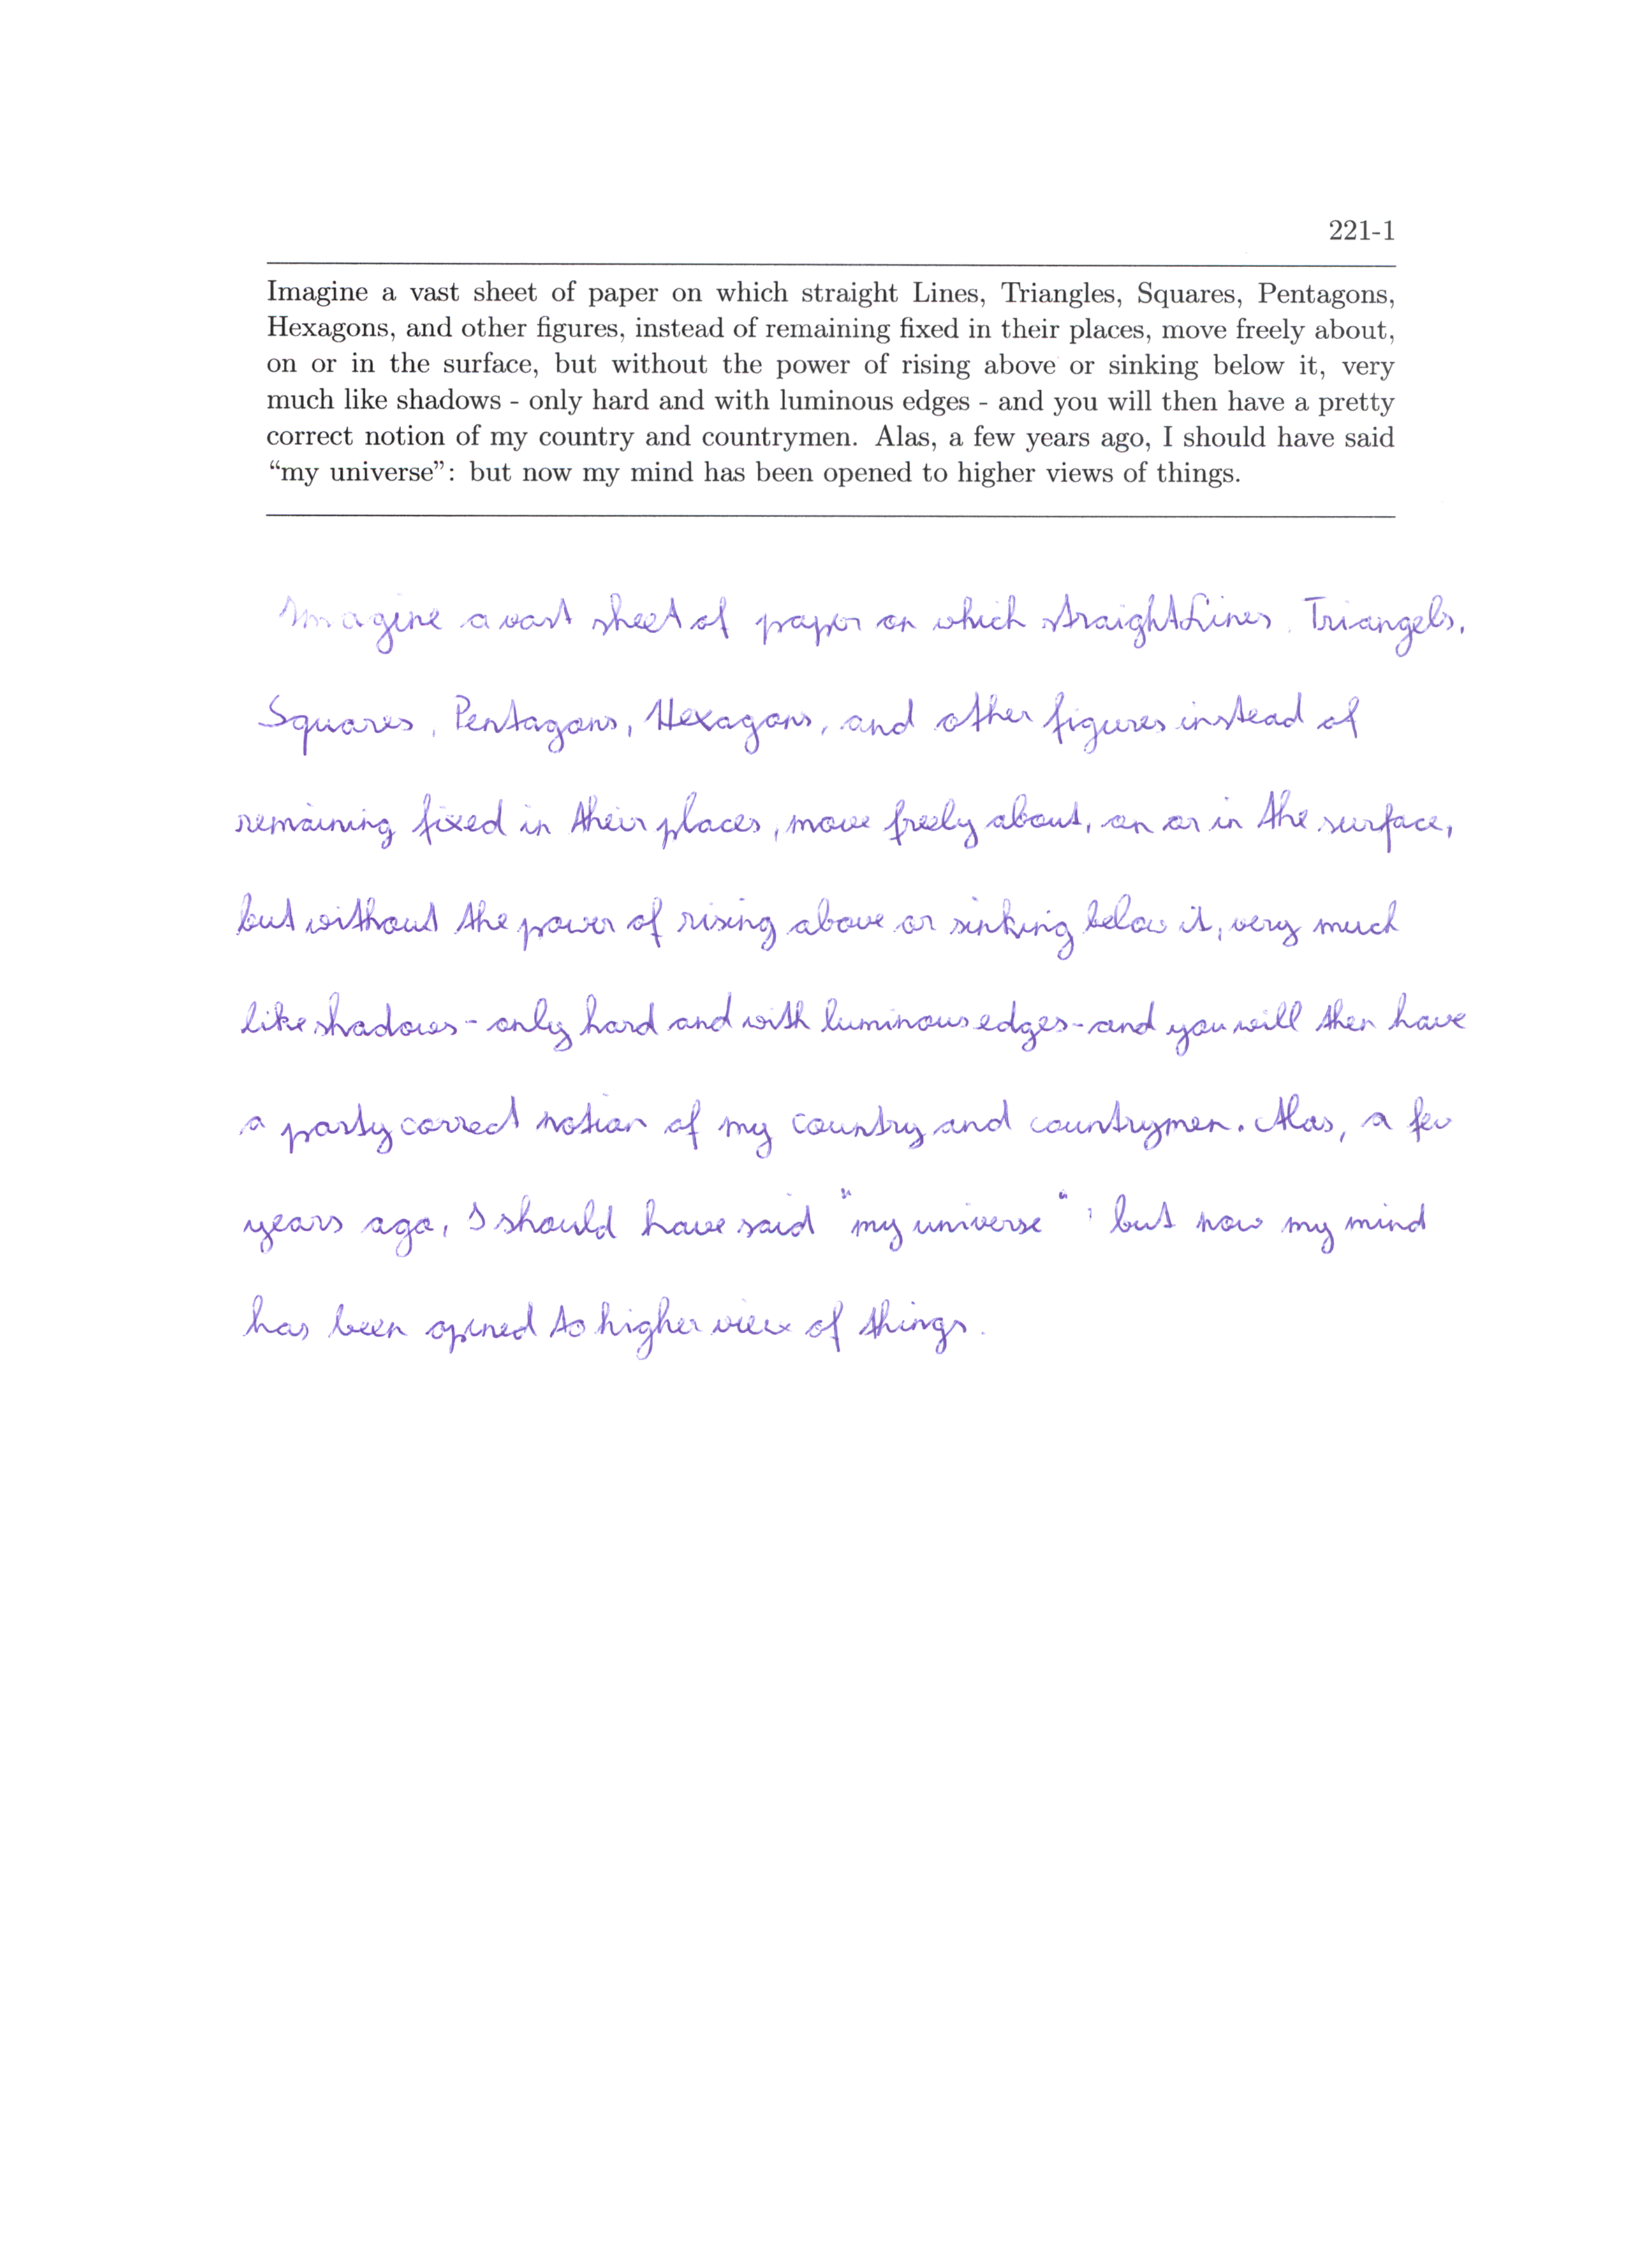 221-1
Imagine a vast sheet of paper on which straight Lines, Triangles, Squares, Pentagons,
Hexagons, and other figures, instead of remaining fixed in their places, move freely about,
on or in the surface, but without the power of rising above or sinking below it, very
much like shadows - only hard and with luminous edges - and you will then have a pretty
correct notion of my country and countrymen. Alas, a few years ago, I should have said
“my universe”: but now my mind has been opened to higher views of things.
Imagine a vast sheet of paper on which straight Lines, Triangels,
Squares, Pentagons, Hexagons, and other figures instead of
remaining fixed in their places, move freely about, on or in the surface,
but without the power of rising above or sinking below it, very much
like shadows - only hard and with luminous edges - and you will then have
a party correct notion of my country and countrymen. Alas, a few
years ago, I should have said "my universe": but now my mind
has been opened to higher view of things.